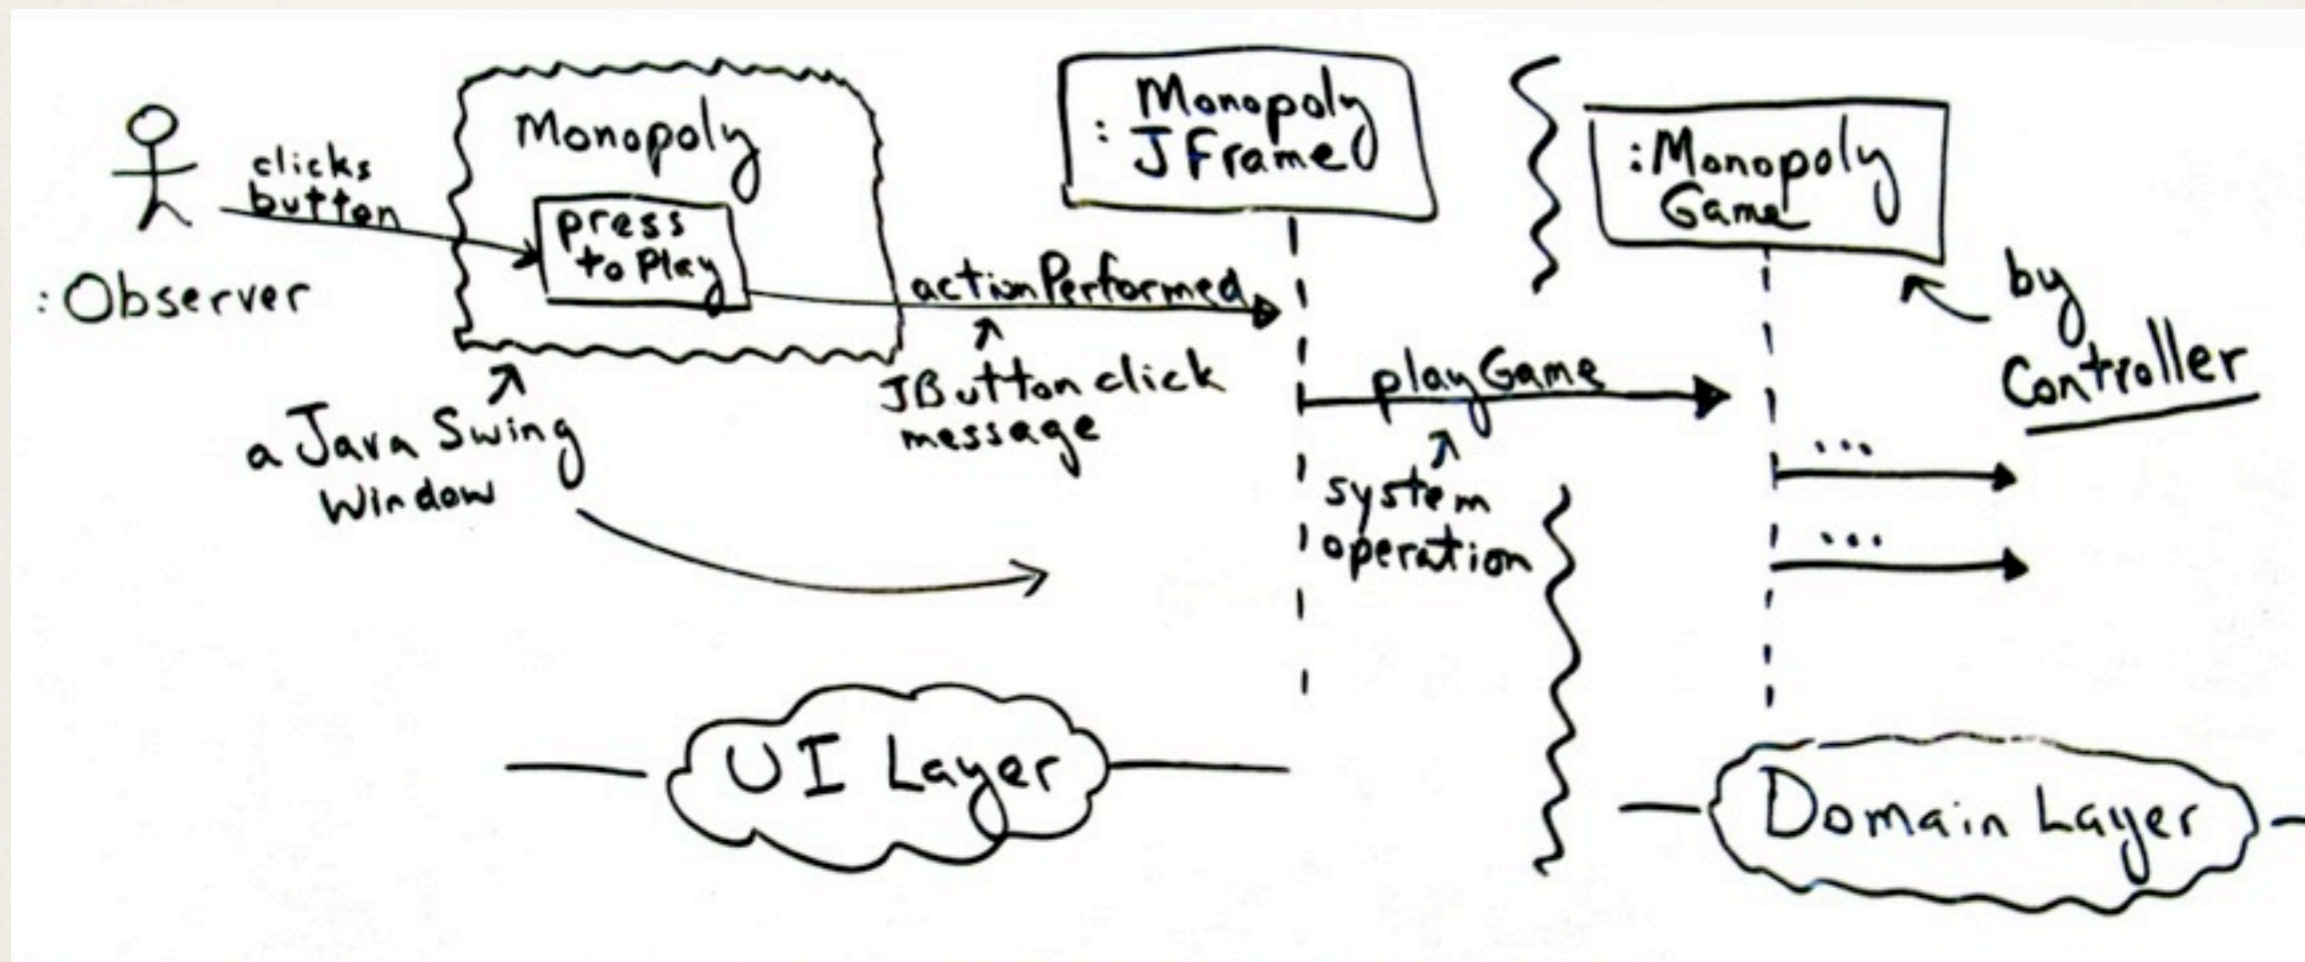 clicks
button
:Observer
Monopoly
press
to Play
a Java Swing
Window
actionPerformed
JButton click
message
: Monopoly
JFrame
playGame
system
operation
:Monopoly
Game
by
Controller
...
...
UI Layer
Domain Layer